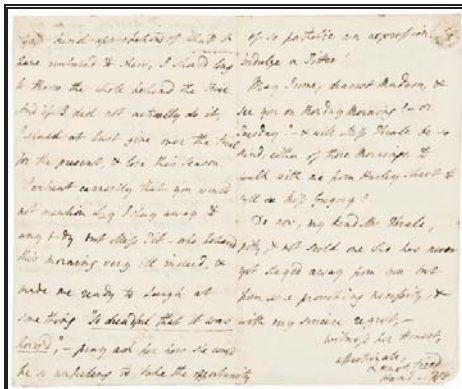 kind approbations of what to
have ventured to shew, I should long
to throw the whole behind the Fire
And if I did not actually do it,
I should at least give over the trial
for the present, & lose this season.
I entreat earnestly that you would
not mention Sig away to
any body but Miss Tit. who behaved
this morning very ill indeed, &
made me ready to laugh at
something "so dreadful that it was
horrid", – pray ask her how she could
be so unfeeling to take the opportunity
of so pathetic an expression to
indulge a Titter!
May I come, dearest Madam, &
see you on Monday Morning? – or
Tuesday? – & will Miss Thrale be so
kind, either of those Mornings to
walk with me from Harley Street to
call on Miss Gregory?
Do now, my kind Mrs Thrale,
pity, & not scold one who has never
yet stayed away from you but
from some provoking necessity, &
with my sincere regret, –
witness her Honest,
affectionate,